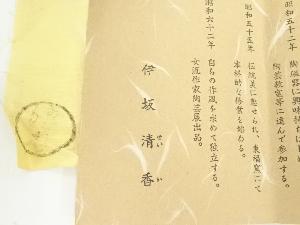 昭和五十二年 陶磁器に興味持ち
陶芸教室等に進んで参加する。
昭和五十五年 伝統美に魅せられ、東福窯にて
本格的な修業を始める。
昭和六十二年 自らの作風を求めて独立する。
女流作家陶芸展出品。
伊坂清香
せい か